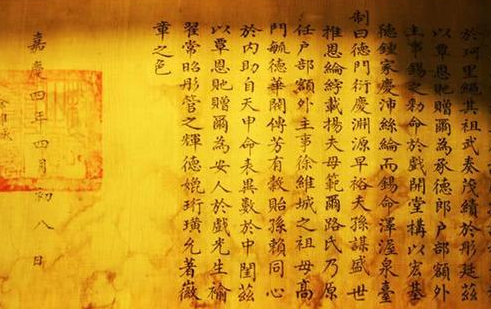 於珂里繩其祖武奏淺績於彤廷茲
以覃恩貤贈爾為承德郎戶部額外
主事錫之勅命於戲開堂構以宏基
德鍾家慶沛絲綸而錫命澤渥泉臺
制曰德門衍慶淵源早裕夫孫謀盛世
推恩綸綍載揚夫母範爾路氏乃原
任戶部額外主事徐維城之祖母高
門毓德華閥傳芳有穀貽孫賴同心
於內助自天申命表異數於中閨茲
以覃恩貤贈爾為安人於戲光生褕
翟常昭彤管之輝德媲珩璜允著徽
章之色
嘉慶四年四月初八日